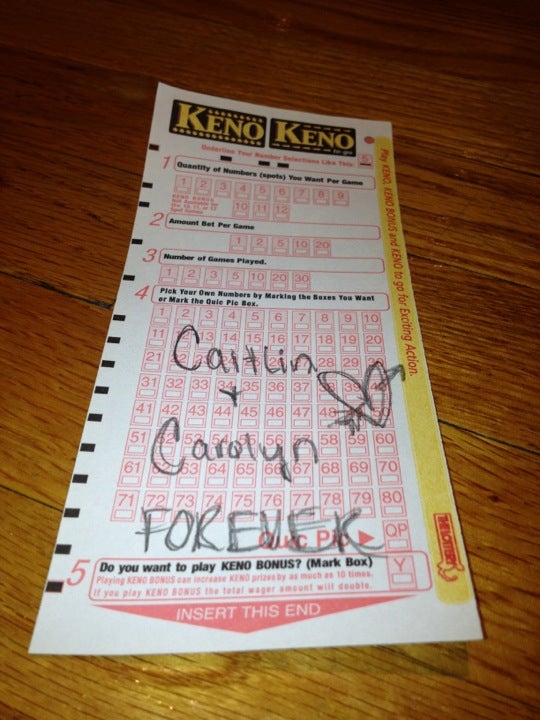 KENO KENO
to go
Underline Your Number Selections Like This 5
1 Quantity of Numbers (spots) You Want Per Game
1 2 3 4 5 6 7 8 9
KENO BONUS
Not Available to
10 11 12
2 Amount Bet Per Game
1 2 5 10 20
3 Number of Games Played.
1 2 3 5 10 20 30
4 Pick Your Own Numbers by Marking the Boxes You Want
or Mark the Quic Pic Box.
1 2 3 4 5 6 7 8 9 10
11 13 14 15 16 17 18 19 20
21 28 29
Caitlin
31 32 33 34 35 36 37 38 39
+
41 42 43 44 45 46 47 48 50
51 58 59 60
Carolyn
61 63 64 65 66 67 68 69 70
71 72 73 74 75 76 77 78 79 80
FOREVER
Quic Pic QP
5 Do you want to play KENO BONUS? (Mark Box) Y
Playing KENO BONUS can increase KENO prizes by as much as 10 times.
If you play KENO BONUS the total wager amount will double.
INSERT THIS END
Play KENO, KENO BONUS and KENO to go for Exciting Action.
THE LOTTERY